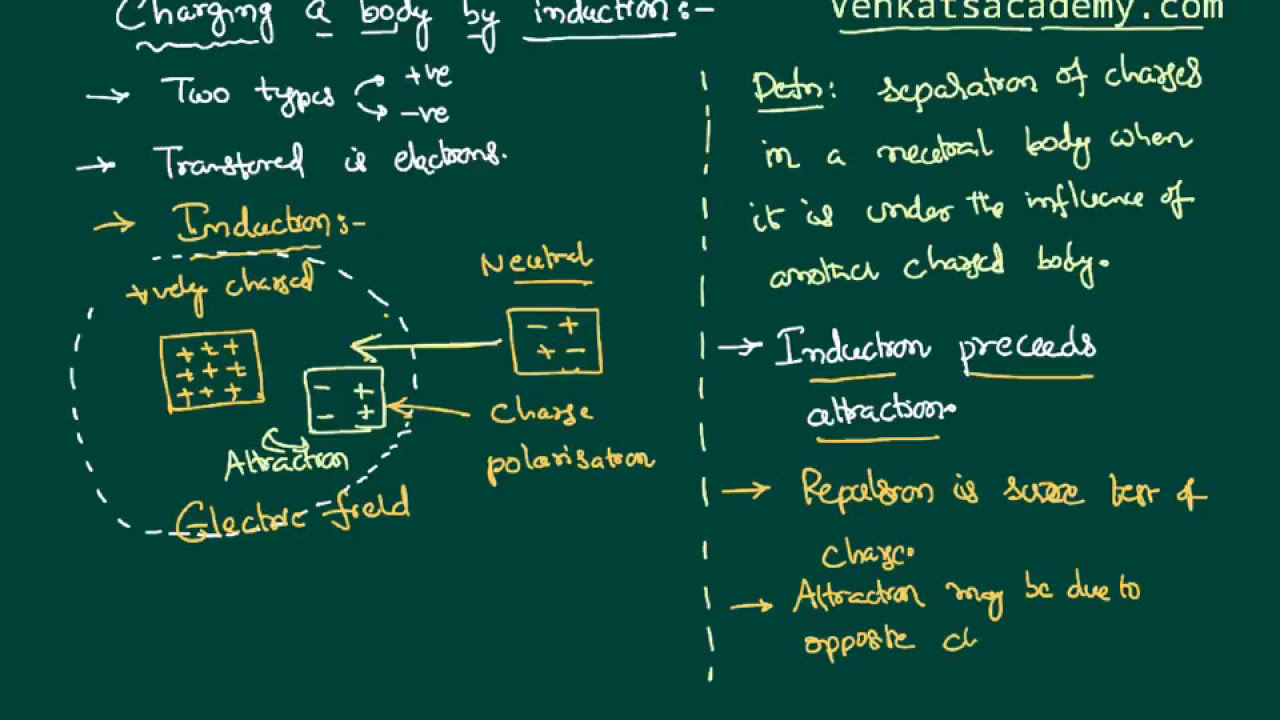 Charging a body by induction:-
venkatsacademy.com
→ Two types +ve
-ve
→ Transfered is electrons.
→ Induction:-
+vely charged
+ + +
+ + +
+ + +
- +
- +
Attraction
Electric field
Neutral
- +
+ -
Charge
polarisation
Defn: separation of charges
in a neutral body when
it is under the influence of
another charged body.
→ Induction preceeds
attraction.
→ Repulsion is sure test of
charge.
→ Attraction may be due to
opposite ch